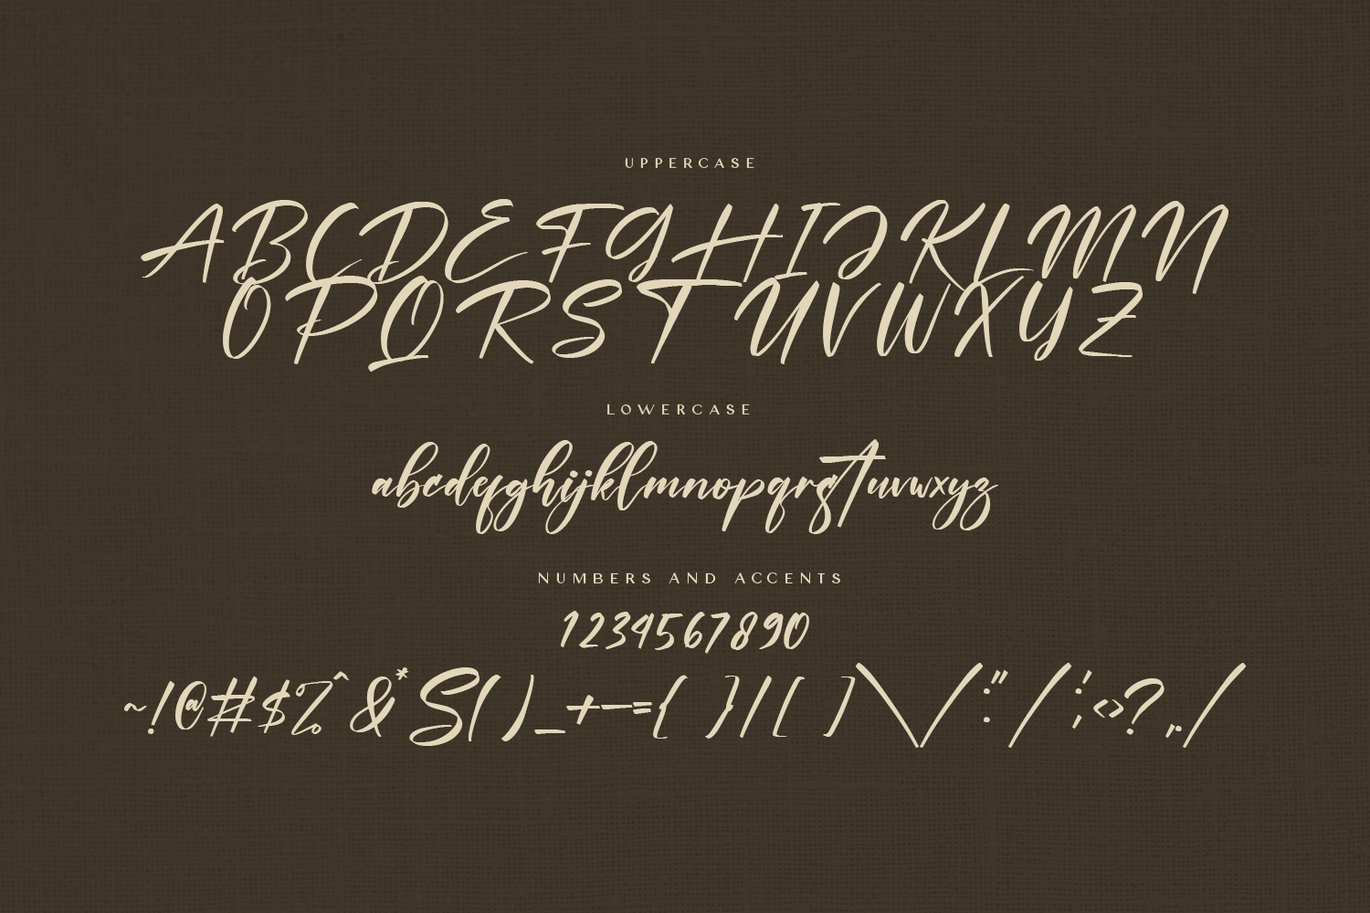 UPPERCASE
ABCDEFGHIJKLMN
OPQRSTUVWXYZ
LOWERCASE
abcdefghijklmnopqrstuvwxyz
NUMBERS AND ACCENTS
1234567890
~!@#$%^&*S()_+-={}|[]\/:"/;'<>?,./